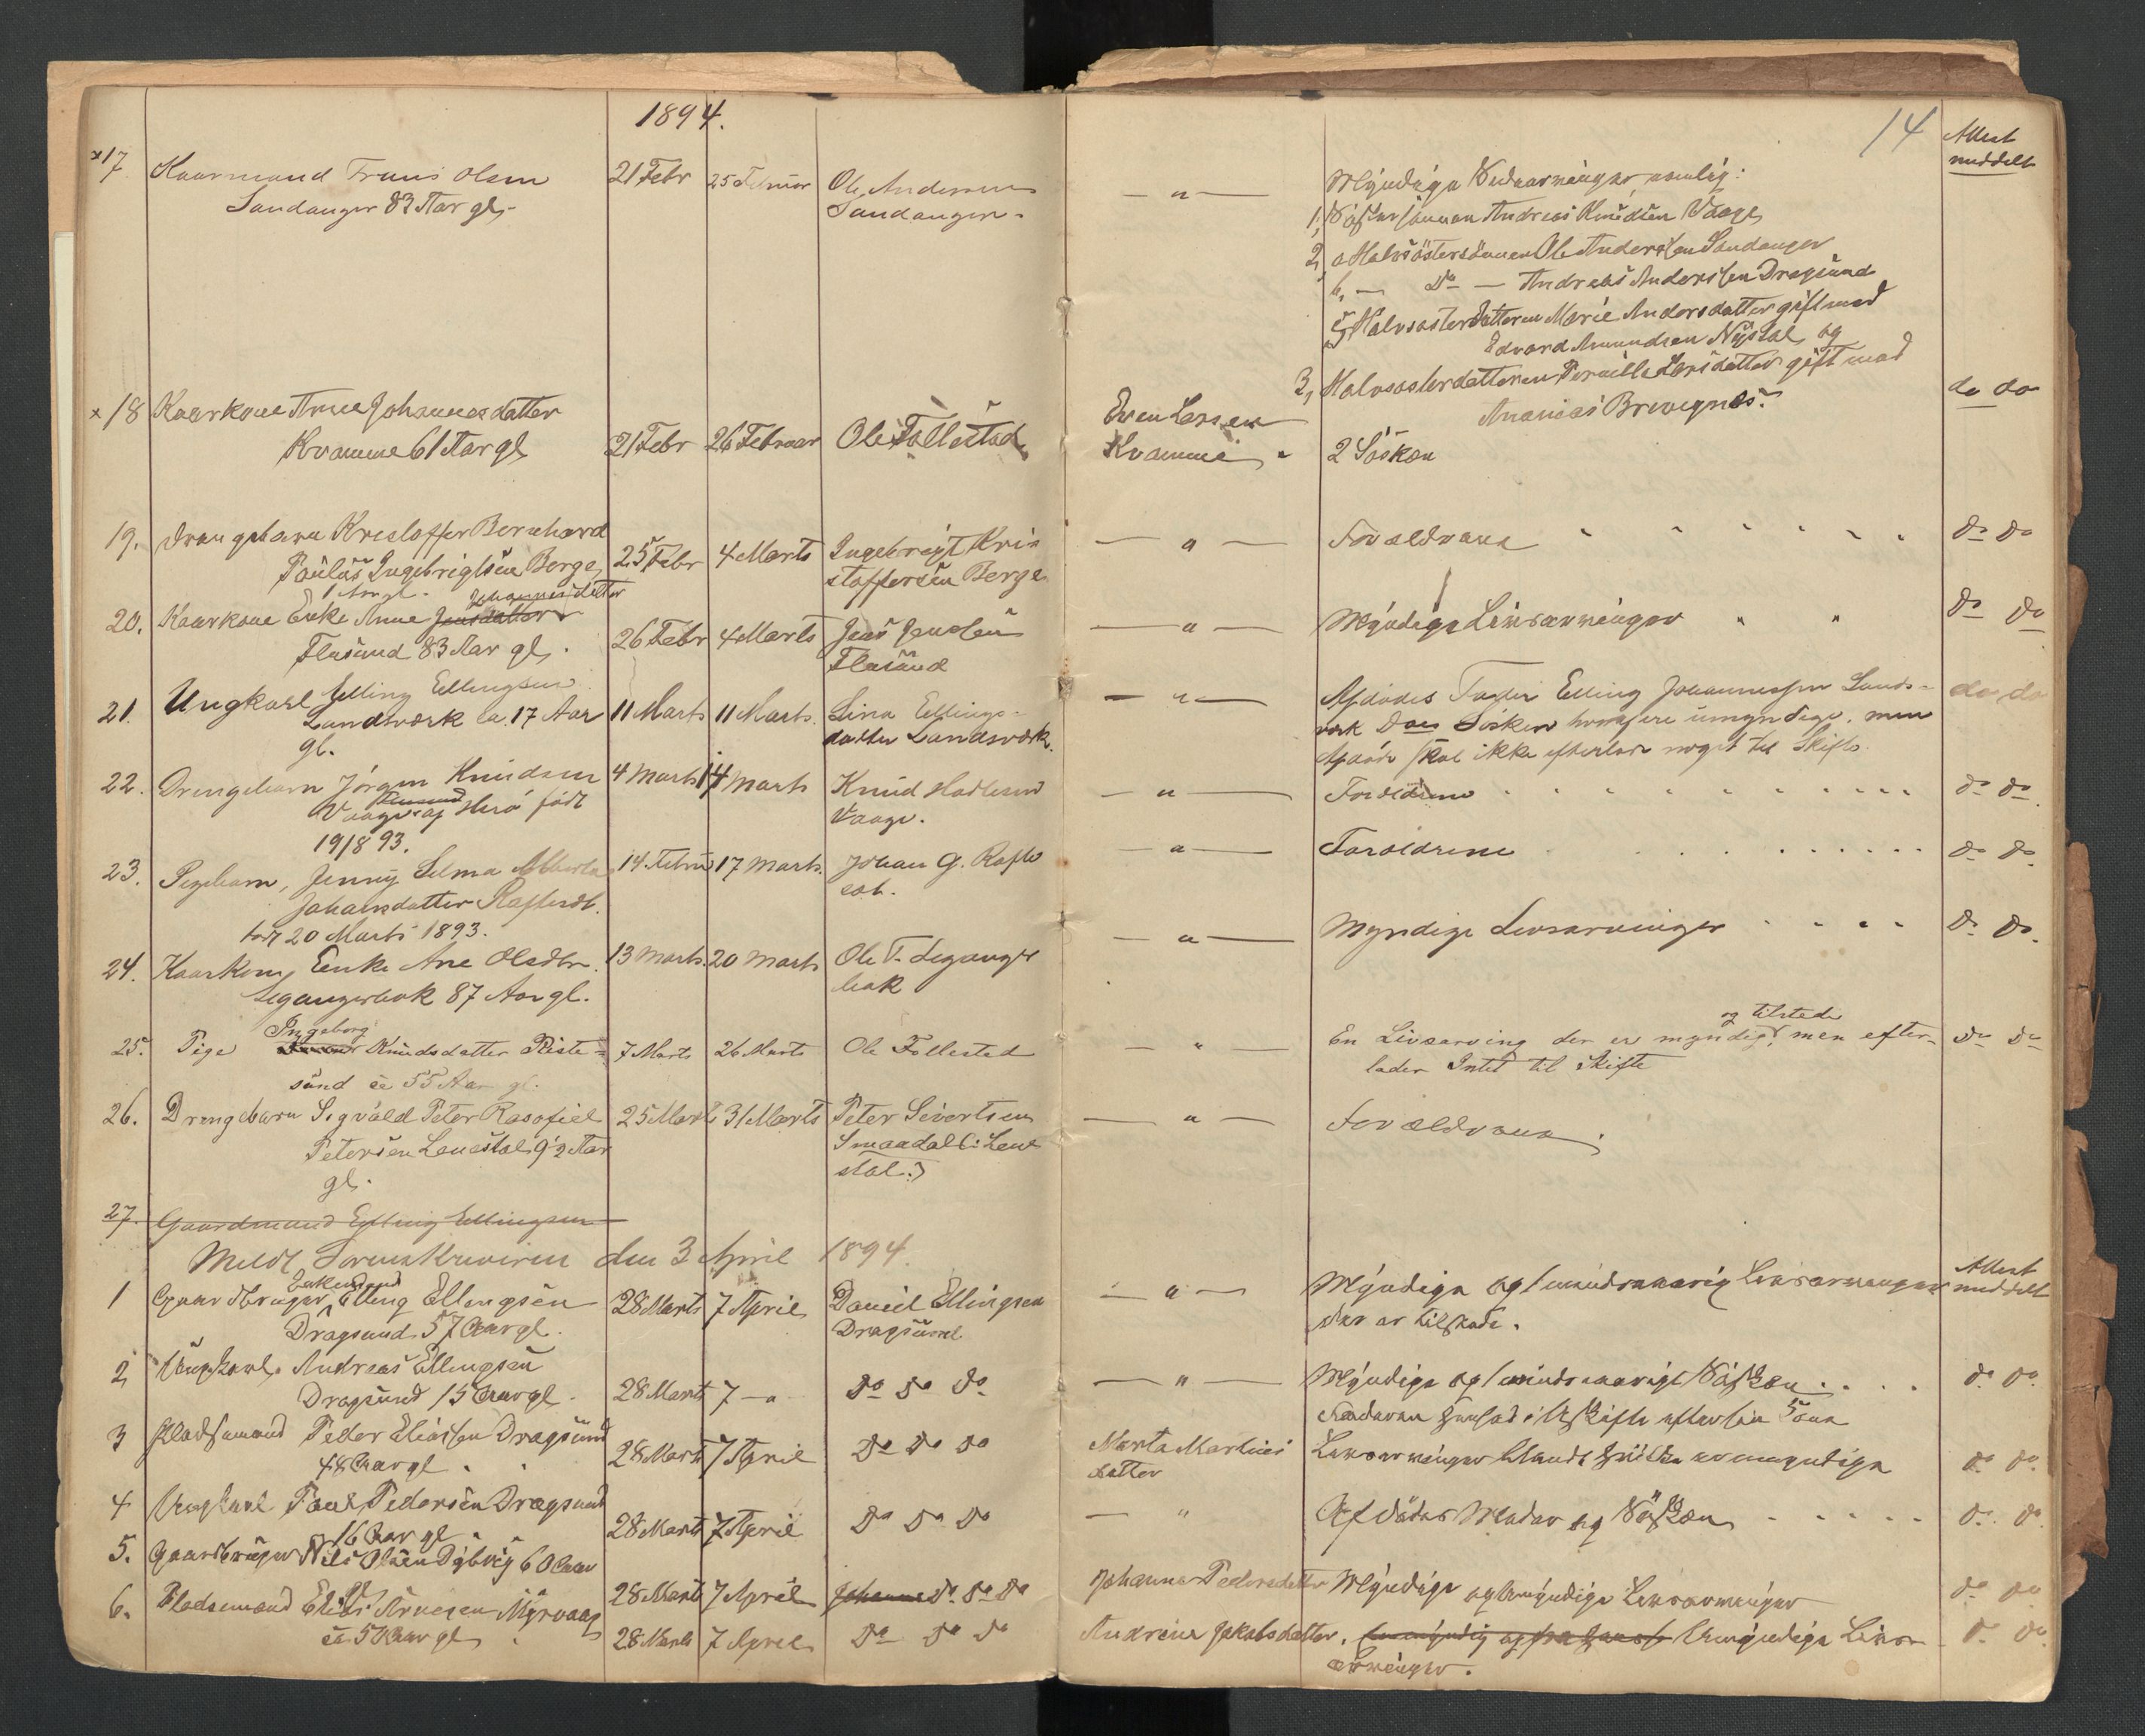 1894.
14
Attest
meddelt
×17. Kaarmand Frans Olsen 21 Febr 25 Februar Ole Andersen — " — Myndige Udarvinger, nemlig:
Sandanger 83 Aar gl. Sandanger.
1, Søstersønnen Andreas Knudsen Vaage,
2, a Halvsøstersønnen Ole Anderssen Sandanger
b, — Do — Andreas Anderssen Dragsund
c, Halvsøsterdatteren Marie Andersdatter gift med
Edvard Amundsen Nystøl, og
3, Halvsøsterdatteren Pernille Larsdatter gift med
Ananias Brevegnes.
×18 Kaarkone Anne Johannesdatter Even Larsen do do
Kvamme 61 Aar gl, 21 Febr 26 Februar Ole Follestad Kvamme " 2 Søsken
19. Drengebarn Kristoffer Bernhard
Paulus Ingebrigtsen Berge, 25 Febr 4 Marts Ingebrigt Kri — " — Forældrene " " " " " " Do Do
1 Aar gl. stoffersen Berge
Johannesdatter
20. Kaarkone Enke Anne Jensdatter 26 Febr 4 Marts Jens Jensen — " — Myndige Livsarvinger " " Do Do
Flusund 83 Aar gl. Flusund
21. Ungkarl Elling Ellingsen 11 Marts 11 Marts. Lina Ellings- — " — Afdødes Fader Elling Johannessen Lands- do do
Landsværk ca. 17 Aar datter Landsværk. værk Søsken hvoraf ere umyndige, men
gl. Afdøde skal ikke efterlade noget til Skifte.
22. Drengebarn Jørgen Knudsen 4 Marts 14 Marts Knud Hadlesen — " — Forældrene . . . . . . . . . Do Do
Vaage af Herø født Vaage.
19/8 93.
23. Pigebarn, Jenny Selma Alberta 14. Februar 17 Marts. Johan G. Rafte — " — Forældrene . . . . . . . . Do Do
Johansdatter Raftesæt. sæt.
født 20 Marts 1893.
24. Kaarkone, Enke Ane Olsdtr. 13 Marts. 20 Marts Ole T. Leganger — " — Myndige Livsarvinger . . . . Do Do.
Legangerbak 87 Aar gl. bak
Ingeborg og tilstede
25. Pige Knudsdatter Riste- 7 Marts 26 Marts Ole Follestad — " — En Livsarving der er myndig, men efter- Do Do
sund ca 55 Aar gl. lader Intet til Skifte
26. Drengebarn Sigvald Peter Rasofiel 25 Marts 31 Marts Peter Sivertsen — " — Forældrene.
Petersen Lenestøl, 9 1/2 Aar Smaadal (: Lene
gl. støl :)
27. Gaardmand Elling Ellingsen
Meldt Sorenskriveren den 3 April 1894.
Attest
meddelt
Enkemand
1 Gaardbruger, Elling Ellingsen 28 Marts 7 April Daniel Ellingsen — " — Myndige og 1 mindreaarig Livsarvinger
Dragsund, 57 Aar gl. Dragsund der er tilstede.
2 Ungkarl Andreas Ellingsen
Dragsund 15 Aar gl. 28 Marts 7 — " Do Do Do — " — Myndige og 1 mindreaarige Søsken . . . . Do Do.
3 Pladsmand Peder Eliassen Dragsund 28 Marts 7 April Do Do Do Marta Martines Livsarvinger blandt hvilke er umyndige Do Do.
48 Aar gl. datter
4 Ungkarl Paul Pedersen Dragsund 28 Marts 7 April Do Do Do — " Afdødes Moder og Søsken . . . . . Do. Do
16 Aar gl
5. Gaardbruger Nils Olsen Dybvig 60 Aar
gl 28 Marts 7 April Johanna Do Do Do Johanna Pedersdatter Myndige og umyndige Livsarvinger Do Do
6. Pladsemand Elias Arnesen Myrvaag 28 Marts 7 April Do Do Do Andrine Jakobsdatter. Umyndige Livs- Do Do.
ca 50 Aar gl, arvinger.